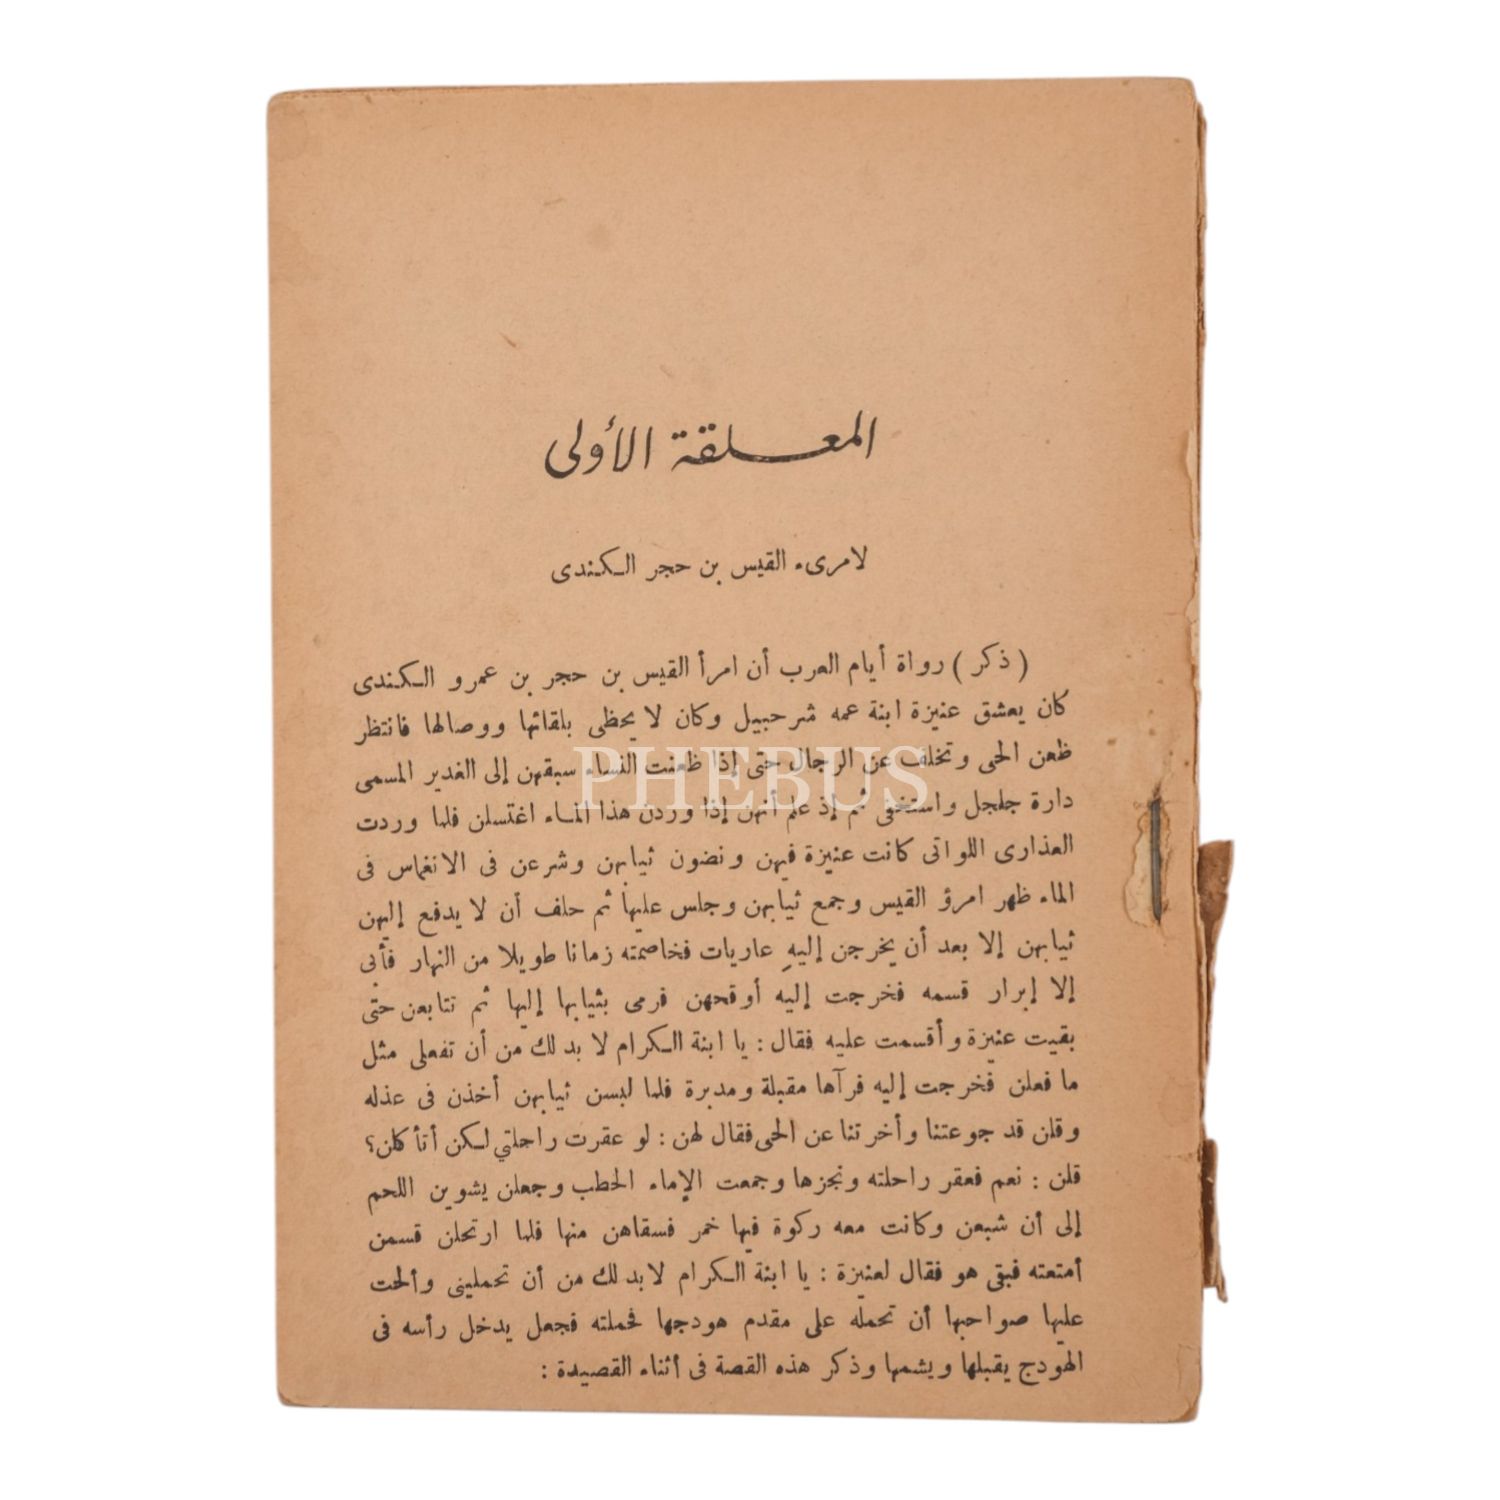 المعلقة الأولى
لامرىء القيس بن حجر الكندى
( ذكر ) رواة أيام العرب أن امرأ القيس بن حجر بن عمرو الكندى
كان يعشق عنيزة ابنة عمه شرحبيل وكان لا يحظى بلقائها ووصالها فانتظر
ظعن الحى وتخلف عن الرجال حتى إذا ظعنت النساء سبقهن إلى الغدير المسمى
دارة جلجل واستخفى ثم إذ علم أنهن إذا وردن هذا الماء اغتسلن فلما وردت
العذارى اللواتى كانت عنيزة فيهن ونضون ثيابهن وشرعن فى الانغماس فى
الماء ظهر امرؤ القيس وجمع ثيابهن وجلس عليها ثم حلف أن لا يدفع إليهن
ثيابهن إلا بعد أن يخرجن إليهِ عاريات فخاصمته زمانا طويلا من النهار فأبى
إلا إبرار قسمه فخرجت إليه أوقحهن فرمى بثيابها إليها ثم تتابعن حتى
بقيت عنيزة وأقسمت عليه فقال : يا ابنة الكرام لا بد لك من أن تفعلى مثل
ما فعلن فخرجت إليه فرآها مقبلة ومدبرة فلما لبسن ثيابهن أخذن فى عذله
وقلن قد جوعتنا وأخرتنا عن الحى فقال لهن : لو عقرت راحلتي لكن أتأكلن؟
قلن : نعم فعقر راحلته ونجزها وجمعت الإماء الحطب وجعلن يشوين اللحم
إلى أن شبعن وكانت معه ركوة فيها خمر فسقاهن منها فلما ارتحلن قسمن
أمتعته فبقى هو فقال لعنيزة : يا ابنة الكرام لابد لك من أن تحملينى وألحت
عليها صواحبها أن تحمله على مقدم هودجها فحملته فجعل يدخل رأسه فى
الهودج يقبلها ويشمها وذكر هذه القصة فى أثناء القصيدة :
PHEBUS